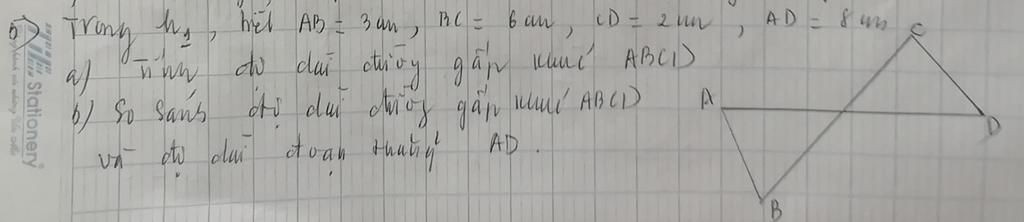 Trong h1, biết AB = 3 cm, BC = 6 cm, CD = 2 cm, AD = 8 cm
a) Tính độ dài đường gấp khúc ABCD
b) So sánh độ dài đường gấp khúc ABCD
và độ dài đoạn thẳng AD.
A
B
C
D
Stationery